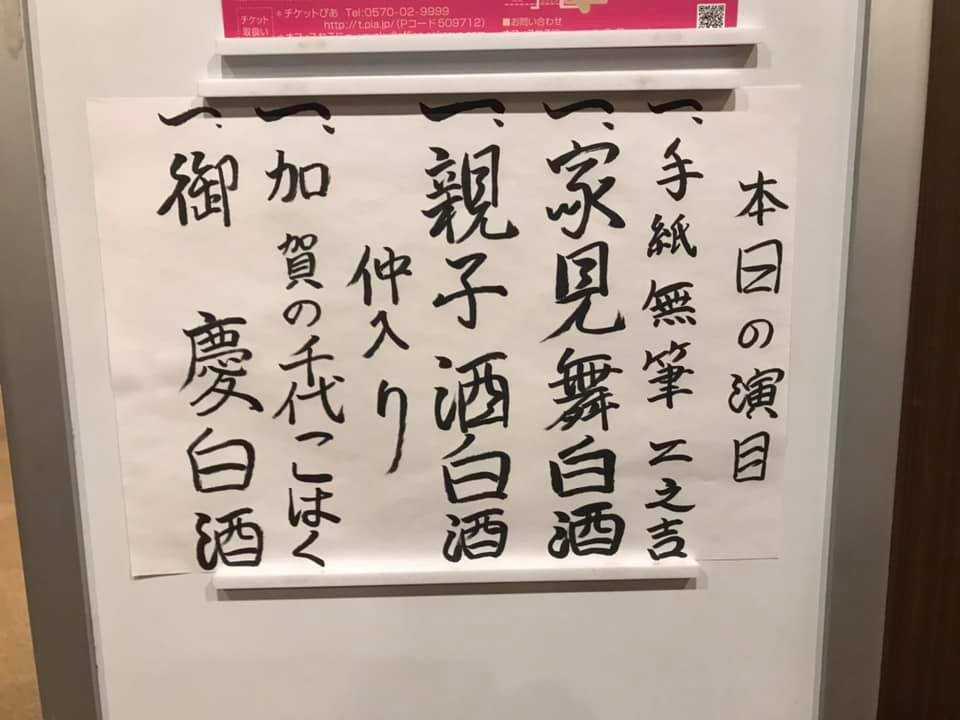 チケット
取扱い
＊チケットぴあ Tel:0570-02-9999
http://t.pia.jp/(Pコード509712)
■お問い合わせ
本日の演目
一、手紙無筆 二之吉
一、家見舞 白酒
一、親子酒 白酒
仲入り
一、加賀の千代 こはく
一、御慶 白酒